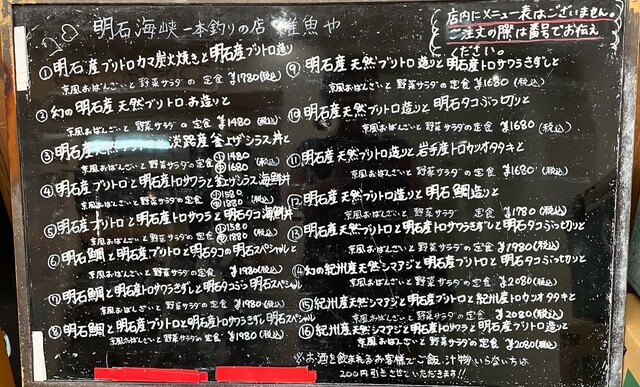 明石海峡一本釣りの店 雑魚や
店内にメニュー表はございません。
ご注文の際は番号でお伝え
ください。
① 明石産ブリトロカマ炭火焼きと明石産ブリトロ造り
京風おばんざいと野菜サラダの定食 ¥1780(税込)
② 幻の明石産天然ブリトロお造りと
京風おばんざいと野菜サラダの定食 ¥1480(税込)
③ 明石産天然 淡路産釜上ゲシラス丼と
京風おばんざいと野菜サラダの定食 ㊥1480 ㊤1680 (税込)
④ 明石産ブリトロと明石産トロサワラと釜上ゲシラス海鮮丼
京風おばんざいと野菜サラダの定食 ㊥1580 ㊤1880 (税込)
⑤ 明石産ブリトロと明石産トロサワラと明石タコ海鮮丼
京風おばんざいと野菜サラダの定食 ㊥1580 ㊤1880 (税込)
⑥ 明石鯛と明石産ブリトロと明石タコの明石スペシャルと
京風おばんざいと野菜サラダの定食 ¥1980(税込)
⑦ 明石鯛と明石産トロサワラと明石タコぶつ明石スペシャルと
京風おばんざいと野菜サラダの定食 ¥1980(税込)
⑧ 明石鯛と明石産ブリトロと明石産トロサワラきずし明石スペシャルと
京風おばんざいと野菜サラダの定食 ¥1980(税込)
⑨ 明石産天然ブリトロ造りと明石産トロサワラきずしと
京風おばんざいと野菜サラダの定食 ¥1680(税込)
⑩ 明石産天然ブリトロ造りと明石タコぶつ切りと
京風おばんざいと野菜サラダの定食 ¥1680(税込)
⑪ 明石産天然ブリトロ造りと岩手産トロカツオタタキと
京風おばんざいと野菜サラダの定食 ¥1680(税込)
⑫ 明石産天然ブリトロ造りと明石鯛造りと
京風おばんざいと野菜サラダ の定食 ¥1780(税込)
⑬ 明石産ブリトロと明石産トロサワラきずしと明石タコぶつ切りと
京風おばんざいと野菜サラダの定食 ¥1980(税込)
⑭ 幻の紀州産天然シマアジと明石産ブリトロと明石タコぶつ切りと
京風おばんざいと野菜サラダの定食 ¥2080(税込)
⑮ 紀州産天然シマアジと明石産ブリトロと紀州産トロカツオタタキと
京風おばんざいと野菜サラダの定食 ¥2080(税込)
⑯ 紀州産天然シマアジと明石産トロサワラと明石産ブリトロ造りと
京風おばんざいと野菜サラダの定食 ¥2080(税込)
※お酒を飲まれるお客様でご飯、汁物いらない方は
200円引きさせていただきます!!